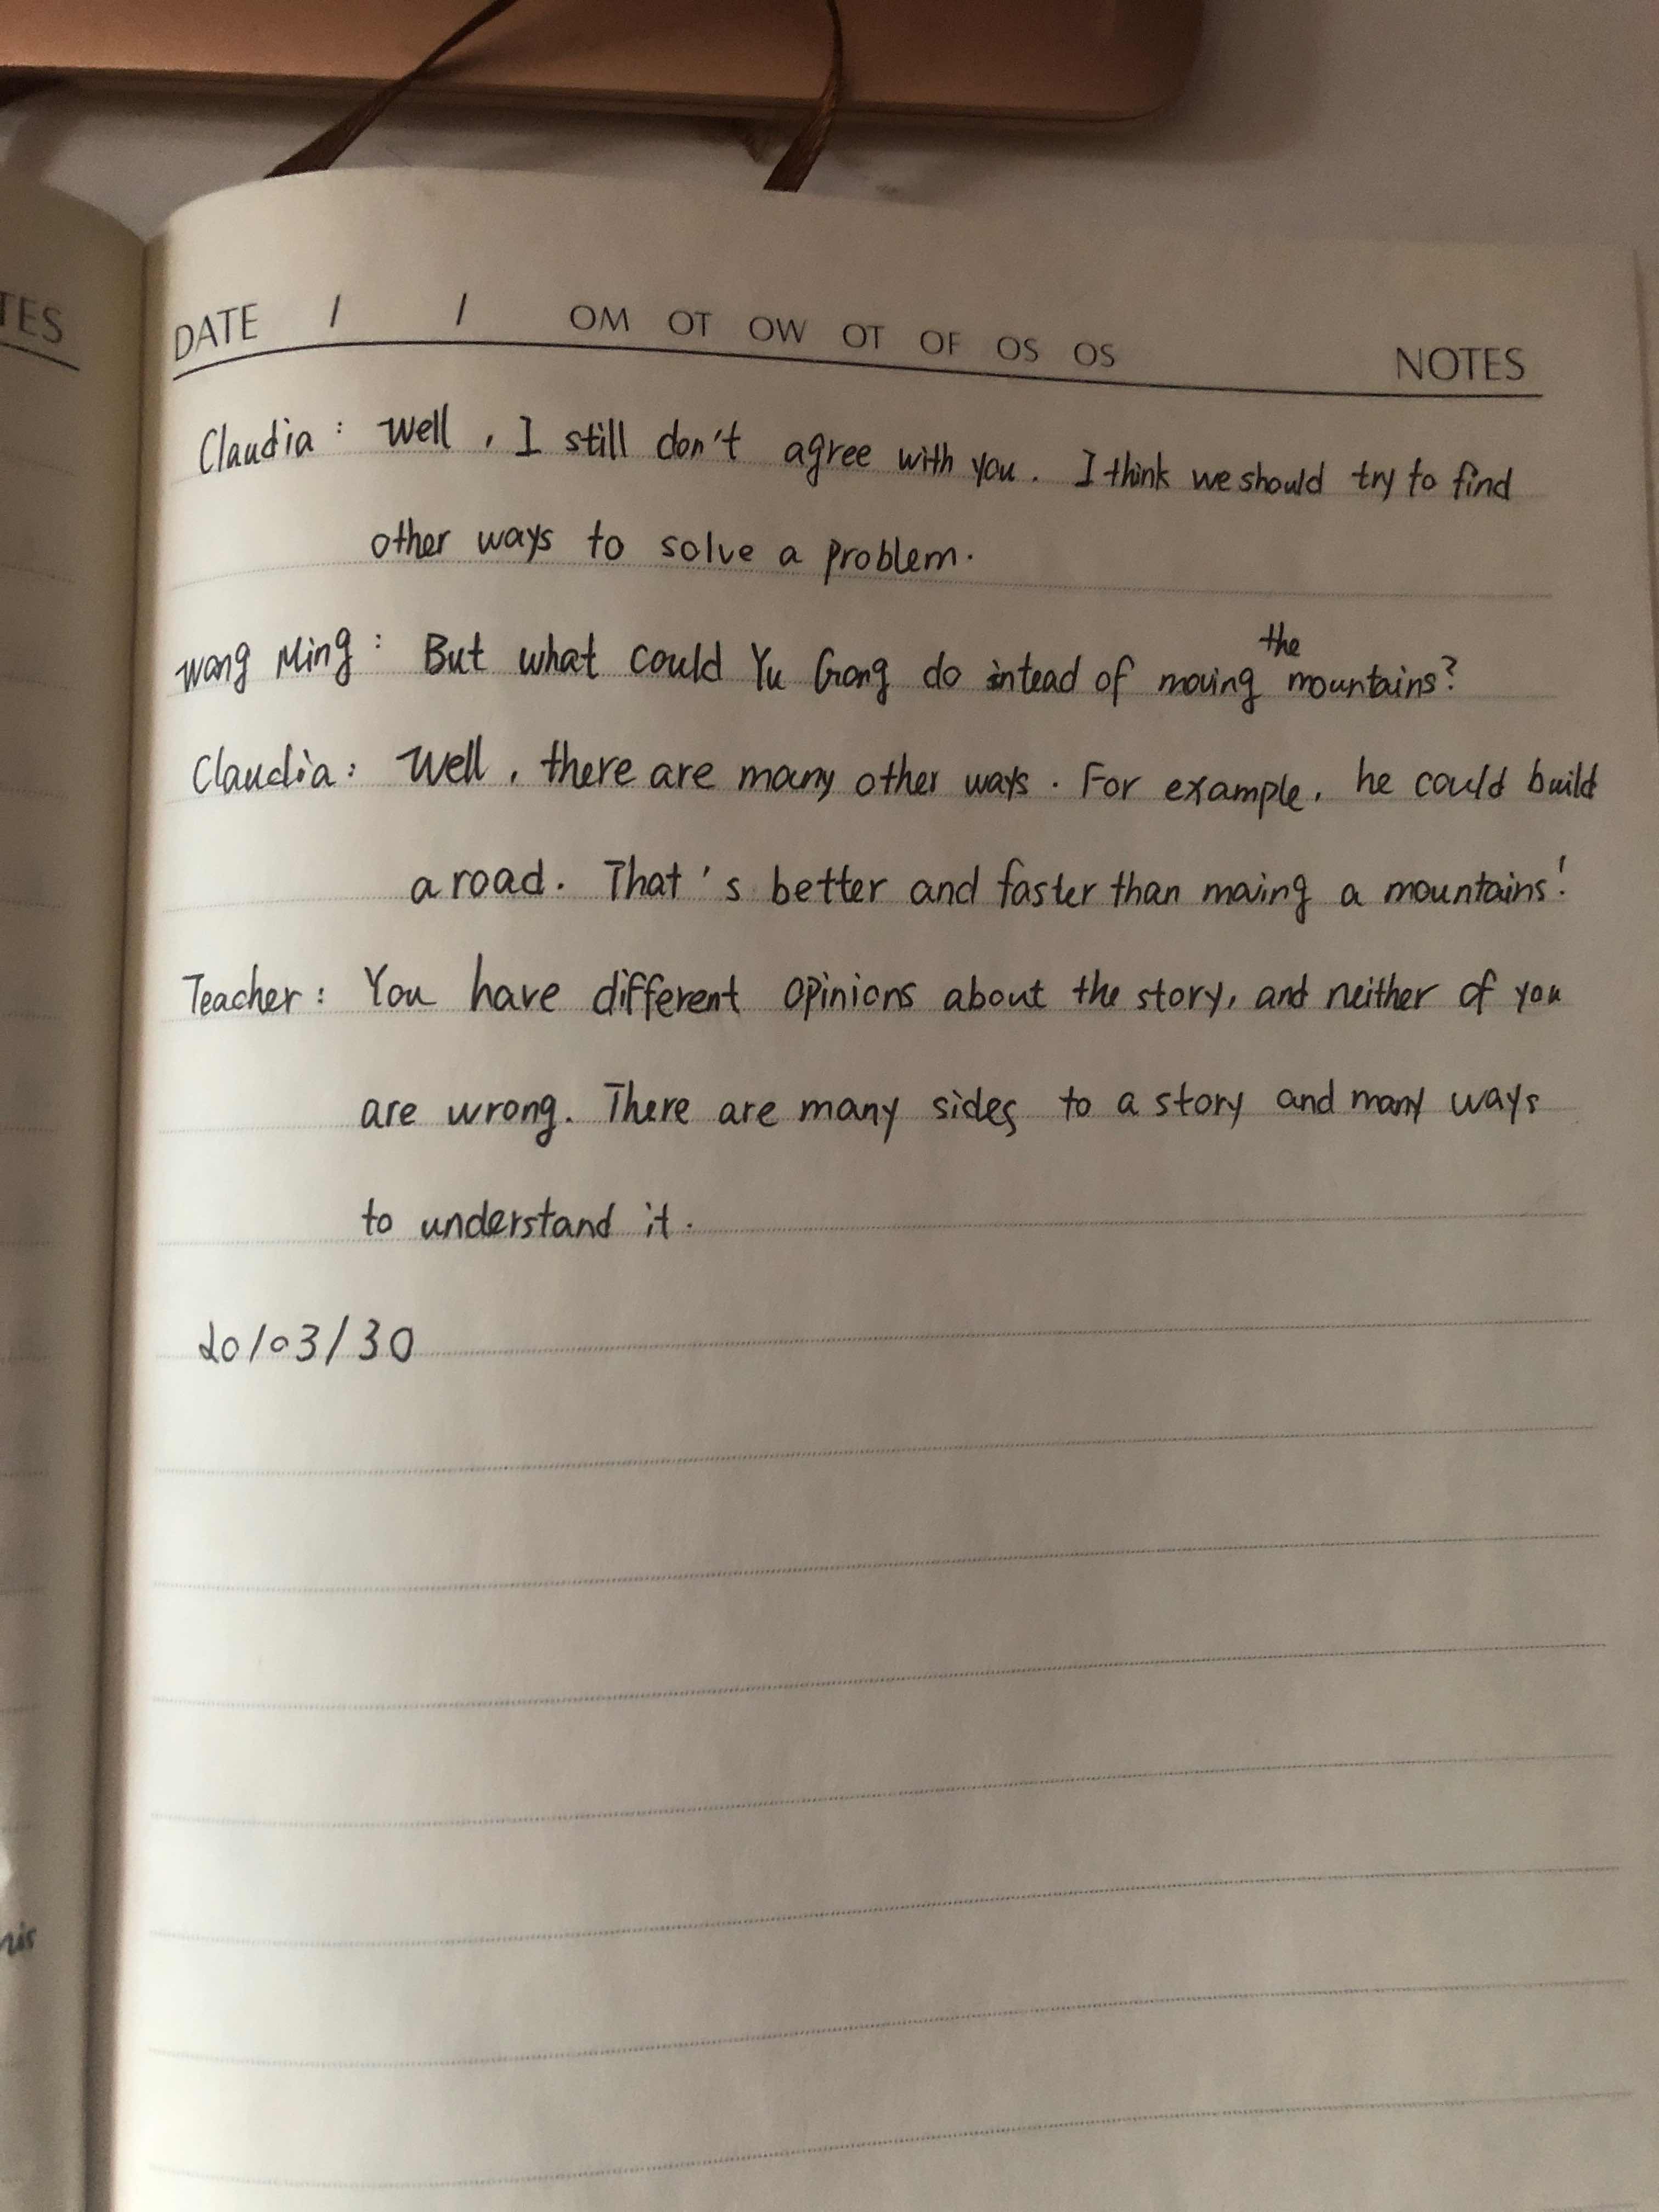 TES
DATE / / OM OT OW OT OF OS OS NOTES
Claudia: Well, I still don't agree with you. I think we should try to find
other ways to solve a problem.
Wang Ming: But what could Yu Gong do intead of moving the mountains?
Claudia: Well, there are many other ways. For example, he could build
a road. That's better and faster than moving a mountains!
Teacher: You have different opinions about the story, and neither of you
are wrong. There are many sides to a story and many ways
to understand it.
20/03/30